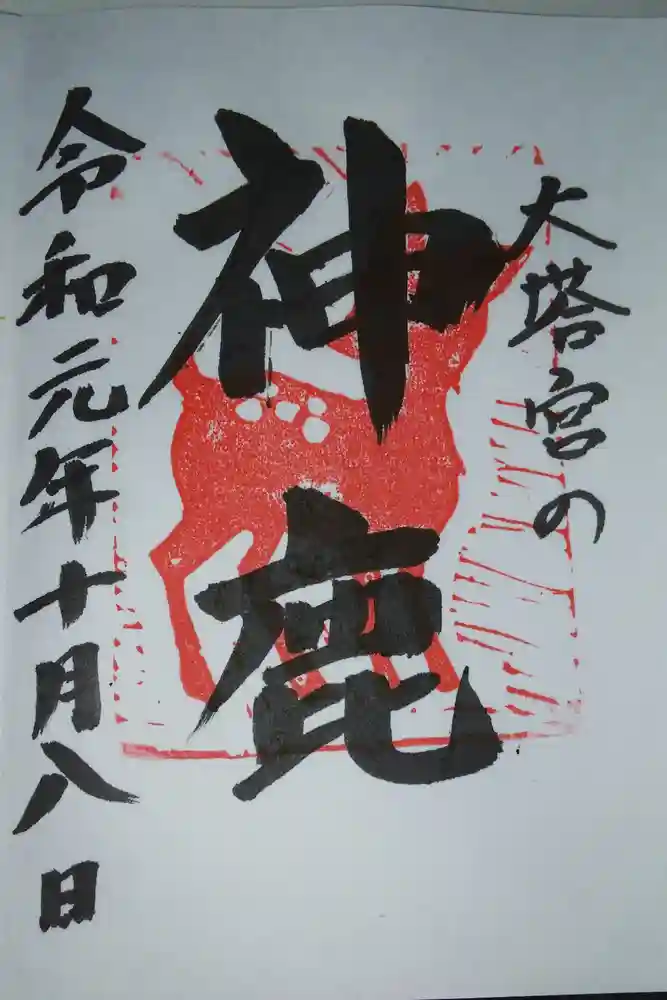 大塔宮の
神鹿
令和元年十月八日